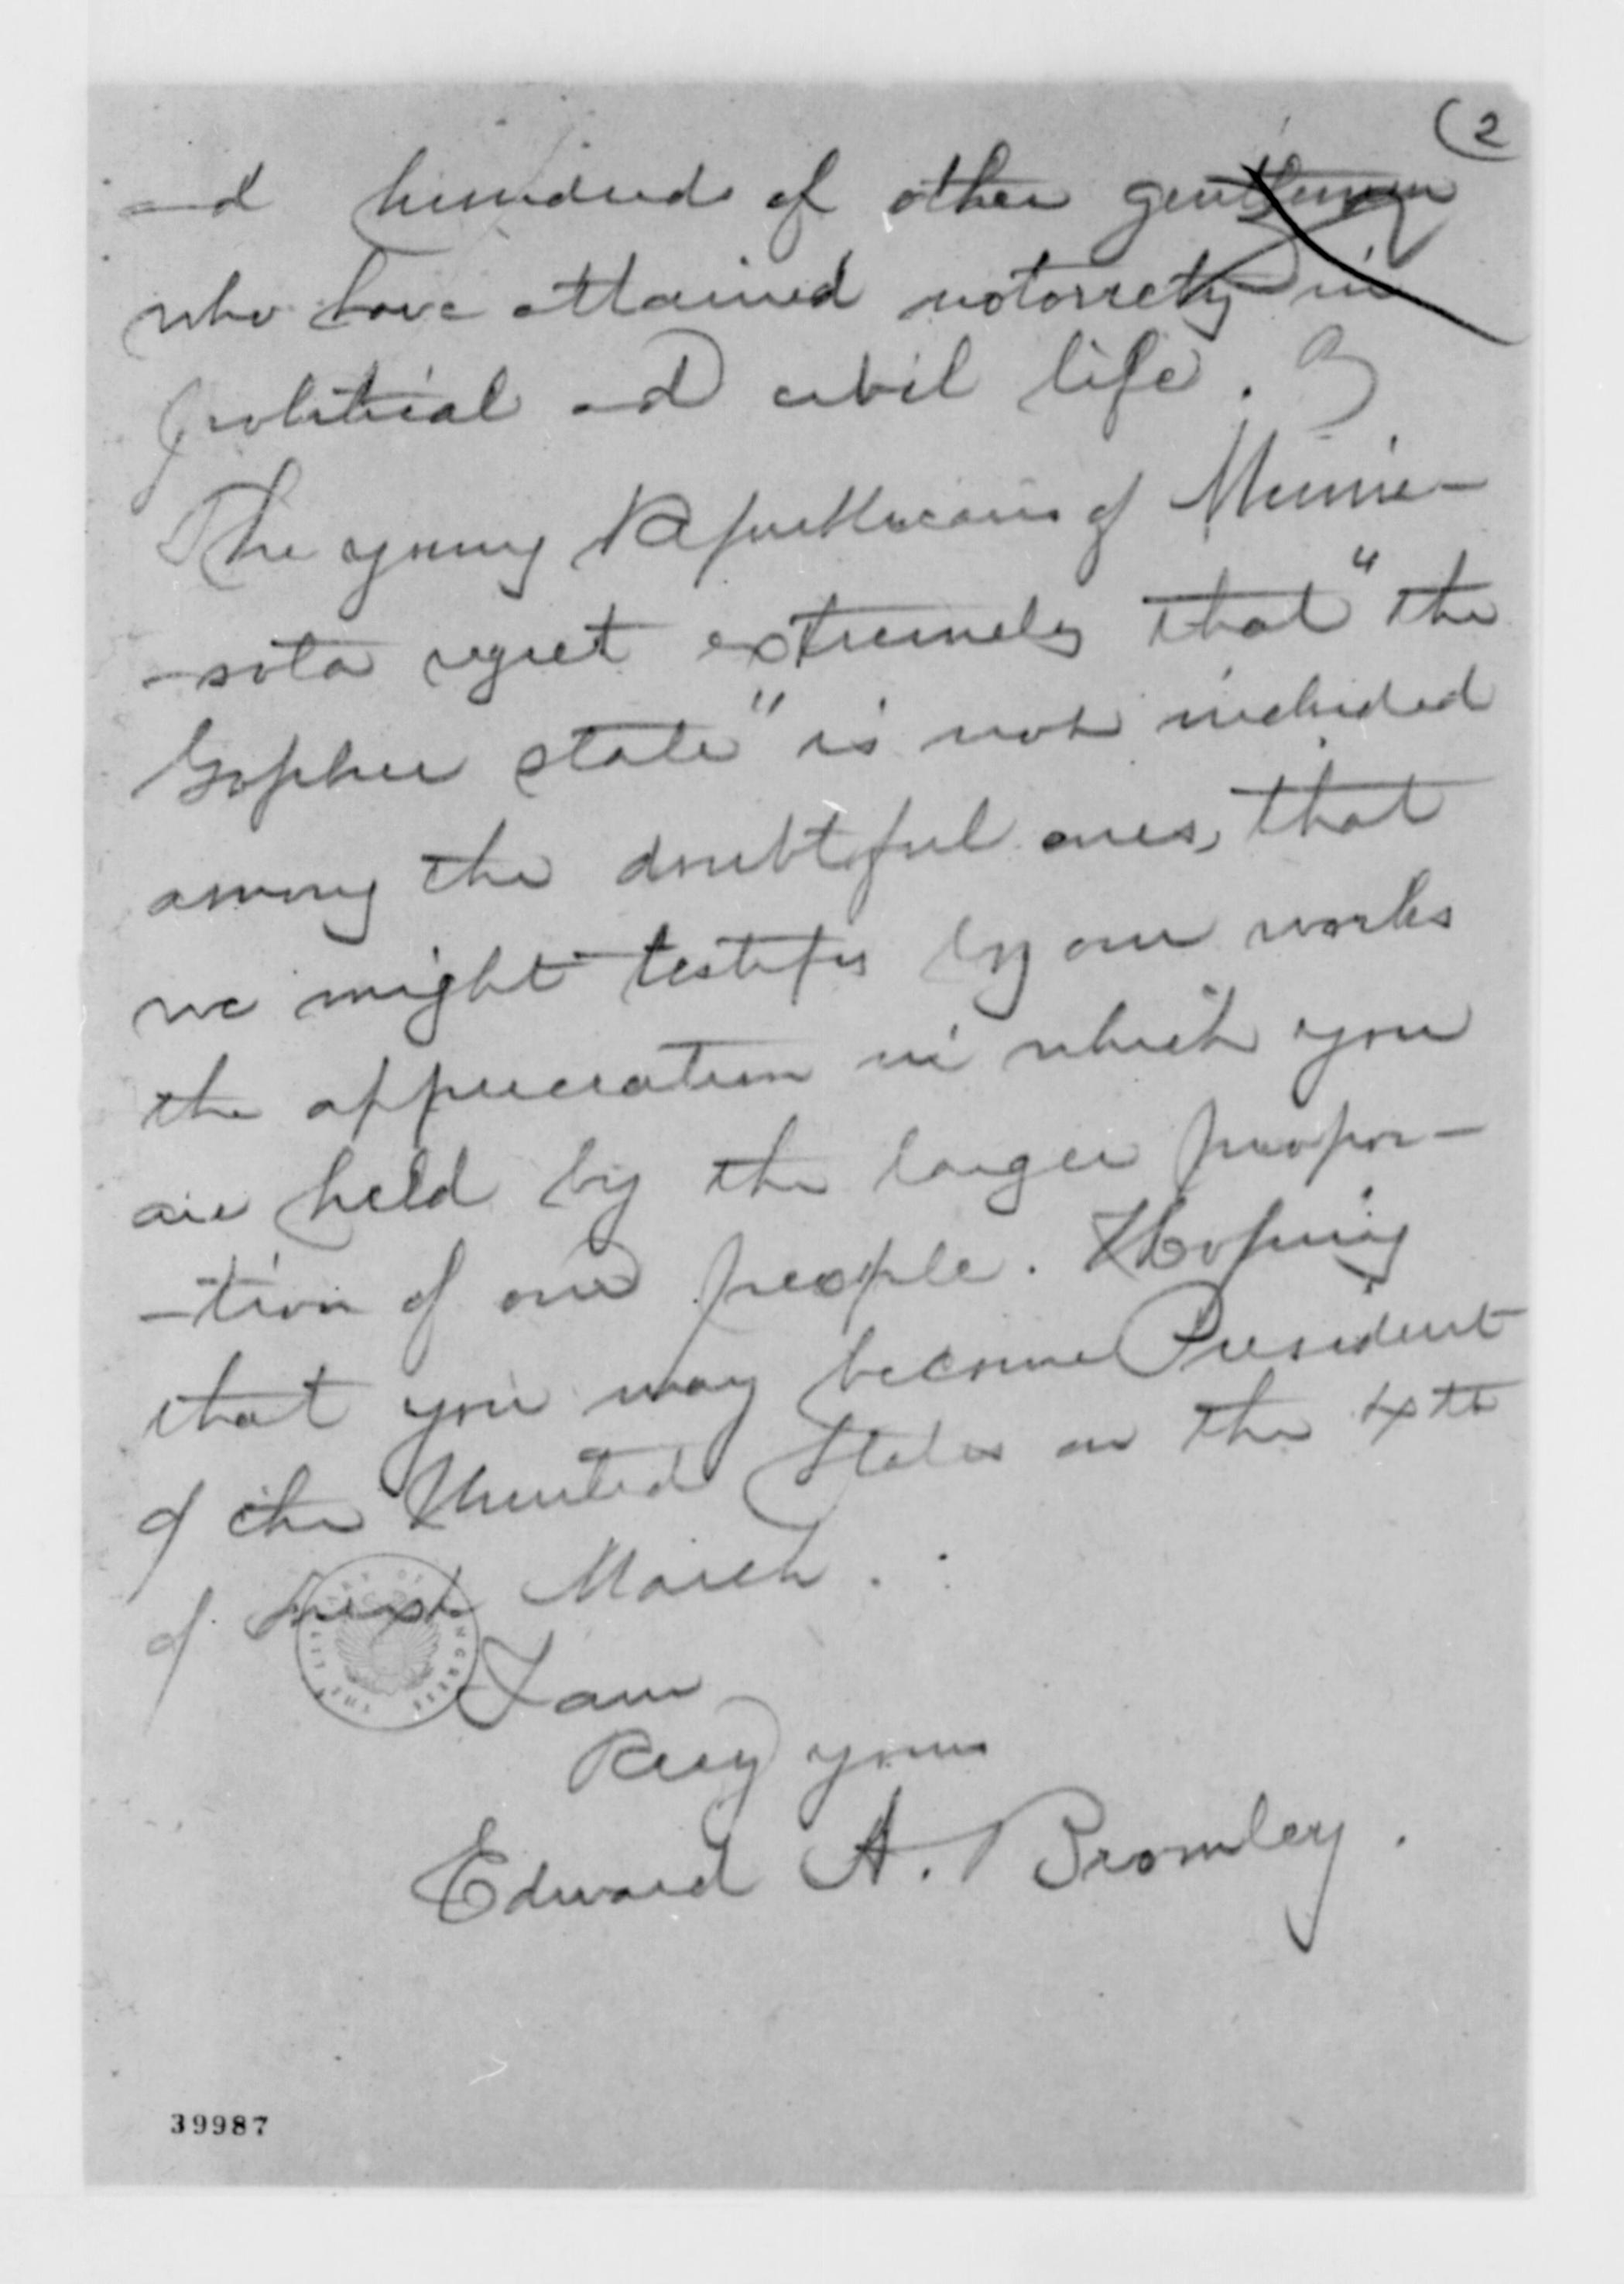 (2
and hundreds of other gentlemen
who have attained notoriety in
political and civil life.
The young Republicans of Minne-
-sota regret extremely that "the
Gopher state" is not included
among the doubtful ones, that
we might testify by our works
the appreciation in which you
are held by the larger propor-
-tion of our people. Hoping
that you may become President
of the United States on the 4th
of next March.
I am
Resy yours
Edward A. Bromley.
39987